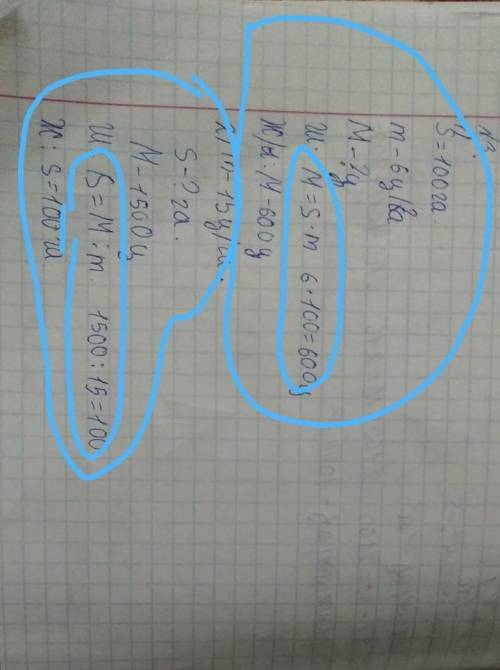 S=100га.
m-6ц/га
M-?ц
Ш: M=S·m 6·100=600ц
Ж/ы: M-600ц
m-15ц/га.
S-?га.
M-1500ц
Ш S=M:m. 1500:15=100
Ж: S=100га